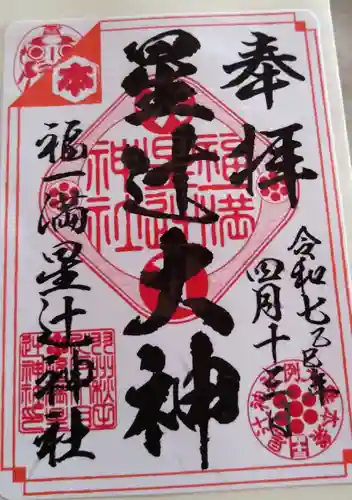 奉拝
令和七乙巳年
四月十三日
星辻大神
福一満星辻神社
本
福一満
星辻
神社